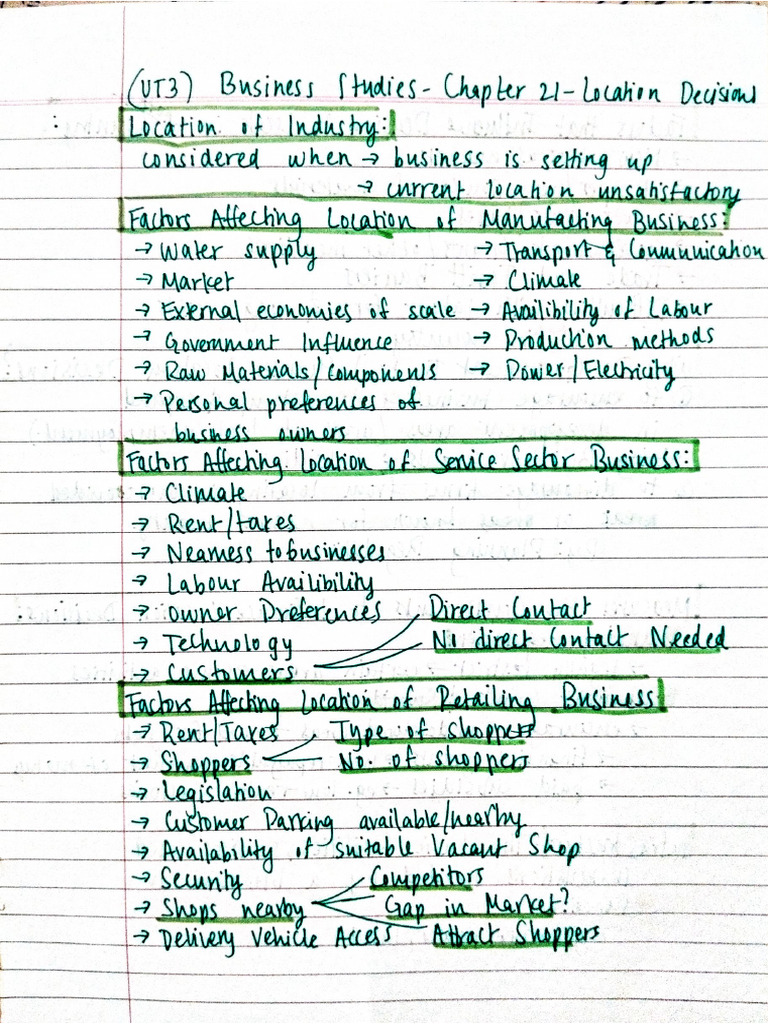 (UT3) Business Studies - Chapter 21 - Location Decisions
Location of Industry:
considered when → business is setting up
→ current location unsatisfactory
Factors Affecting Location of Manufacting Business:
→ Water supply → Transport & Communication
→ Market → Climate
→ External economies of scale → Availibility of Labour
→ Government Influence → Production methods
→ Raw Materials/components → Power/Electricity
→ Personal preferences of
business owners
Factors Affecting Location of Service Sector Business:
→ Climate
→ Rent/taxes
→ Nearness to businesses
→ Labour Availibility
→ Owner Preferences Direct Contact
→ Technology No direct Contact Needed
→ Customers
Factors Affecting Location of Retailing Business
→ Rent/Taxes Type of shoppers
→ Shoppers No. of shoppers
→ Legislation
→ Customer Parking available/nearby
→ Availability of suitable Vacant Shop
→ Security Competitors
→ Shops nearby Gap in Market?
→ Delivery Vehicle Access Attract Shoppers